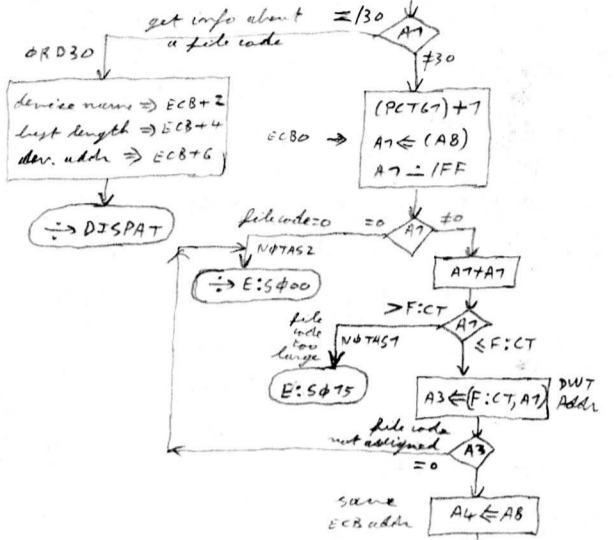 get info about
a file code
=/30
A1
ØRD30
≠30
device name => ECB+2
buff length => ECB+4
dev. addr => ECB+6
ECB0 →
(PCT61)+1
A1 <= (A8)
A1 ∸ /FF
÷→ DISPAT
file code=0
=0
A1
≠0
NØTAS2
÷→ E:SØ00
A1+A1
>F:CT
A1
≤F:CT
file
code
too
large
NØTAS1
E:SØ15
A3 <= (F:CT, A1)
DWT
Addr
file code
not assigned
=0
A3
save
ECB addr
A4 <= A8